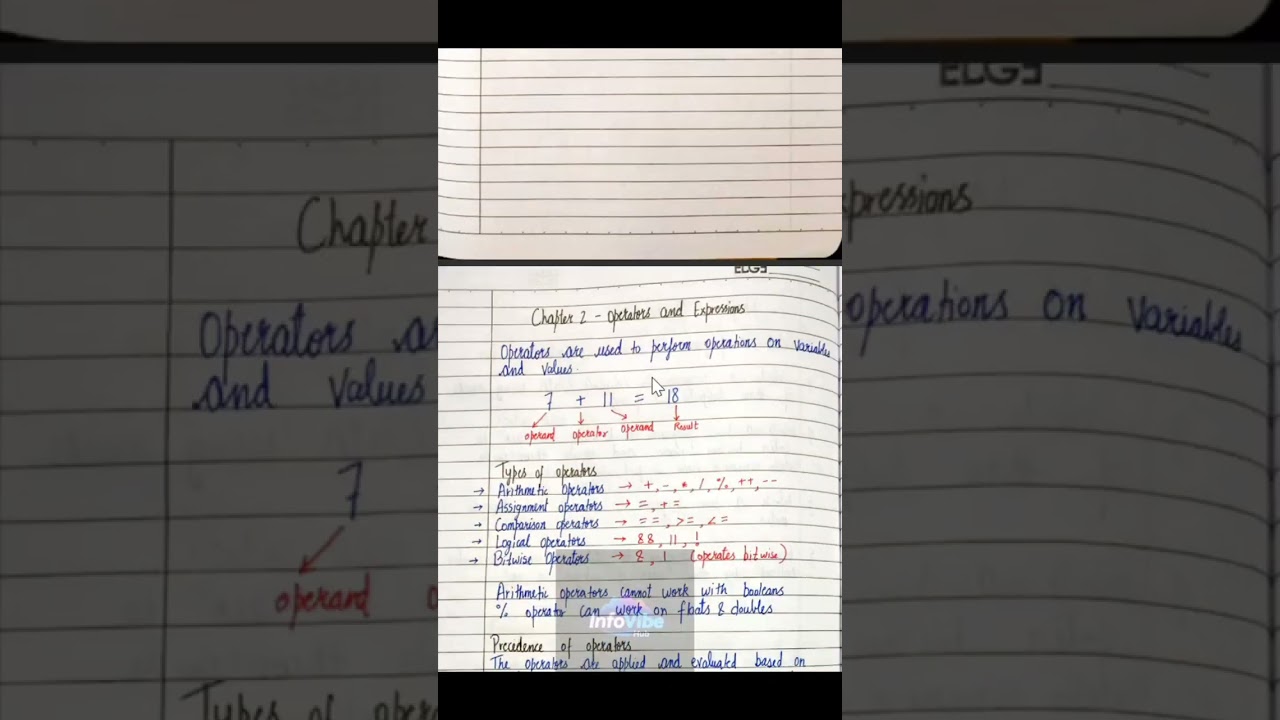 ELGE
Chapter 2 - Operators and Expressions
Operators are used to perform operations on variables
and values.
7 + 11 = 18
operand operator operand Result
Types of operators
→ Arithmetic Operators → +, -, *, /, %, ++, --
→ Assignment operators → =, +=
→ Comparison operators → ==, >=, <=
→ Logical operators → &&, ||, !
→ Bitwise Operators → &, | (operates bitwise)
Arithmetic operators cannot work with booleans
% operator can work on floats & doubles
InfoVibe
Hub
Precedence of operators
The operators are applied and evaluated based on
ELGE
Chapter
pressions
Operators a
operations on variables
and values
7
operand o
Types of oper